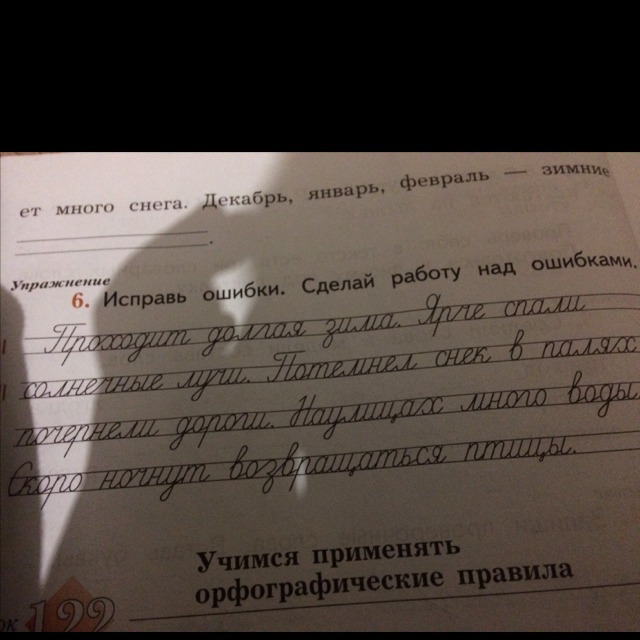 ет много снега. Декабрь, январь, февраль — зимние
.
Упражнение
6. Исправь ошибки. Сделай работу над ошибками.
Проходит долгая зима. Ярче спали
солнечные лучи. Потемнел снек в палях
почернели дороги. Наулицах много воды.
Скоро ночнут возвращаться птицы.
Учимся применять
орфографические правила
ок 122